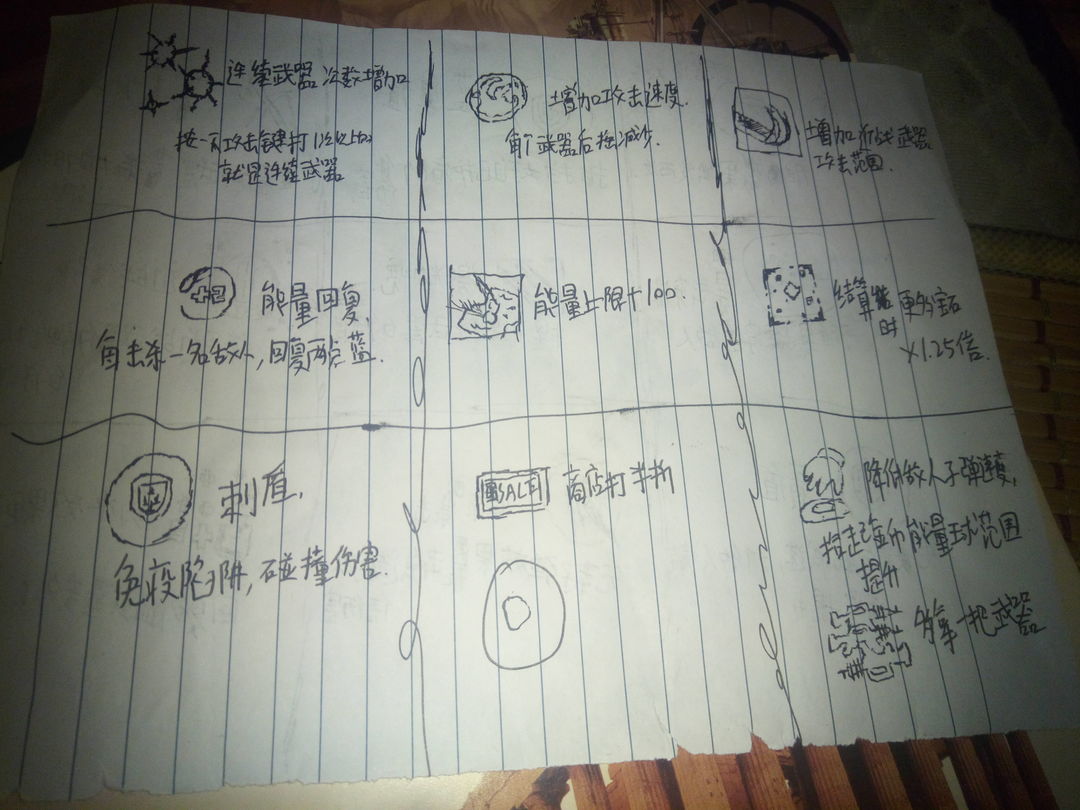 连续武器次数增加
按一下攻击键打1次以上的
就是连续武器
增加攻击速度.
每个武器后摇减少.
增加近战武器
攻击范围.
能量回复,
每击杀一名敌人,回复两点蓝.
能量上限+100.
结算时
更多宝石
×1.25倍.
刺盾,
免疫陷阱,碰撞伤害.
SALE
商店打半折
降低敌人子弹速度,
捡起金币能量球范围
提升
多拿一把武器